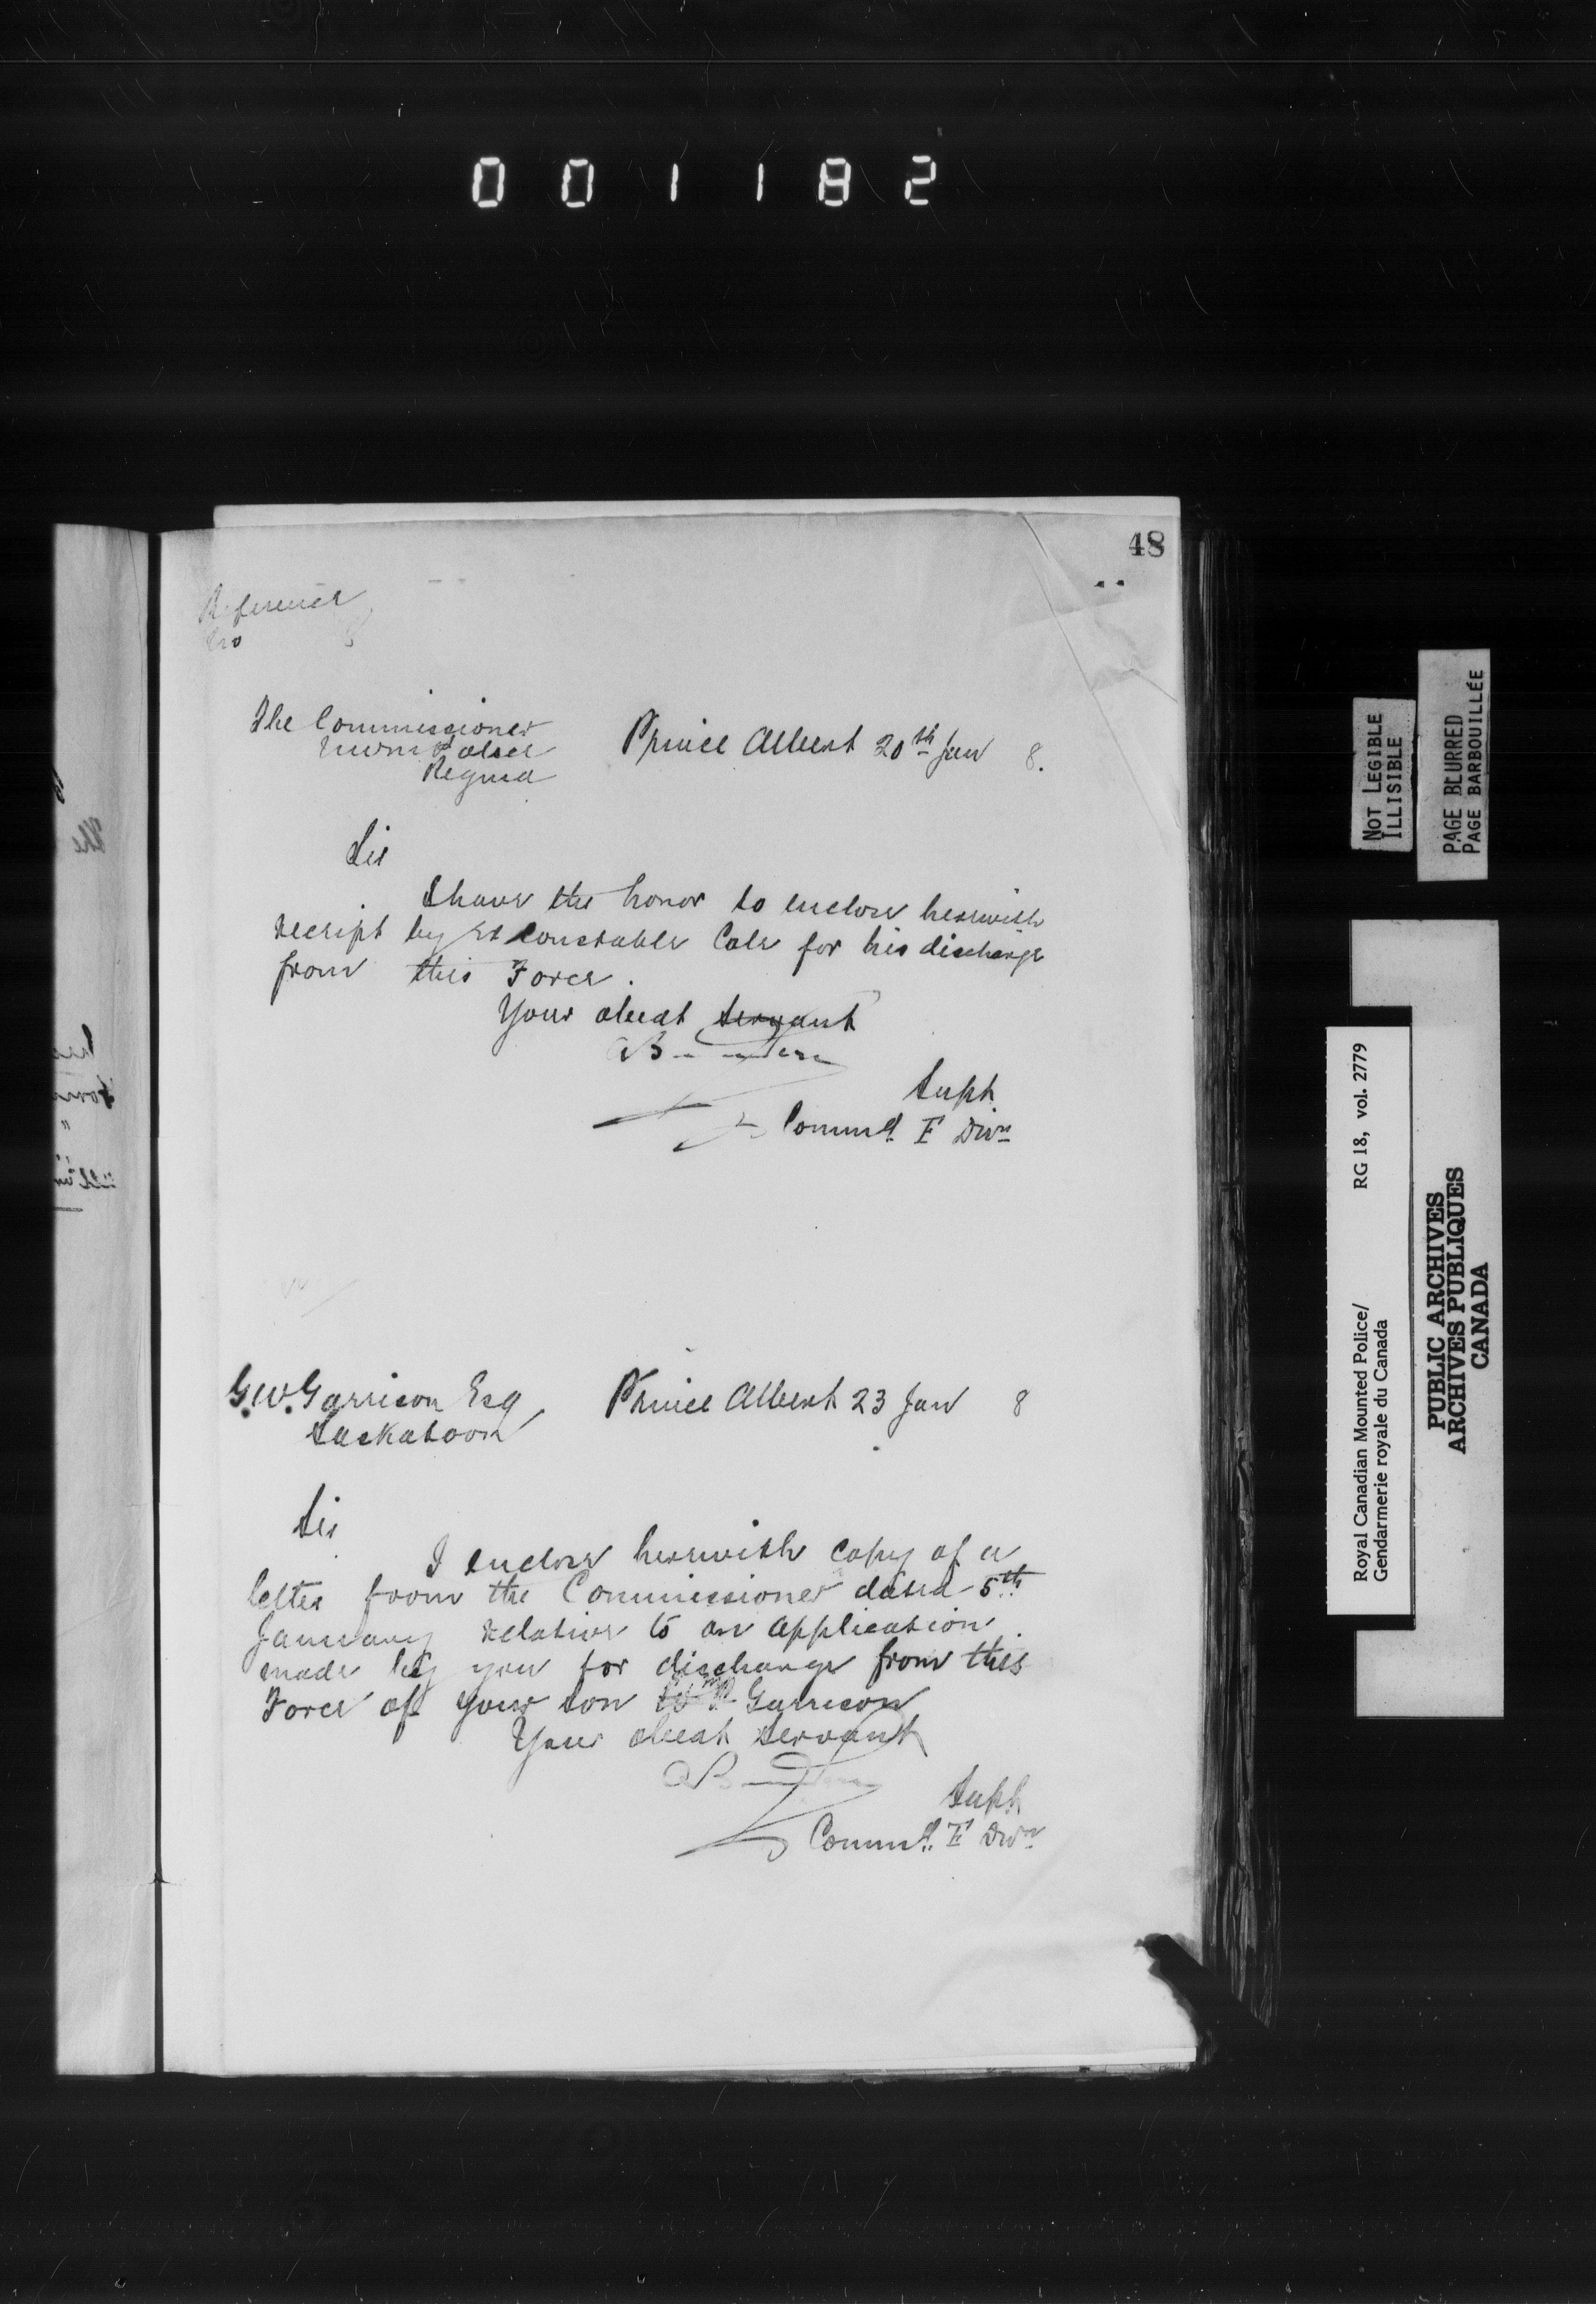 001182
48
Reference
No 8
The Commissioner
N.W.M. Police
Regina
Prince Albert 20th Jan 8.
Sir
I have the honor to enclose herewith
receipt by Ex Constable Cole for his discharge
from this Force.
Your obedt servant
Supt
Commd. F Divn
G.W. Garrison Esq
Saskatoon
Prince Albert 23 Jan 8
Sir
I enclose herewith copy of a
letter from the Commissioner dated 5th
January relative to an application
made by you for discharge from this
Force of your son Garrison
Your obedt servant
Supt
Commd. F Divn
NOT LEGIBLE
ILLISIBLE
PAGE BLURRED
PAGE BARBOUILLÉE
Royal Canadian Mounted Police/ RG 18, vol. 2779
Gendarmerie royale du Canada
PUBLIC ARCHIVES
ARCHIVES PUBLIQUES
CANADA